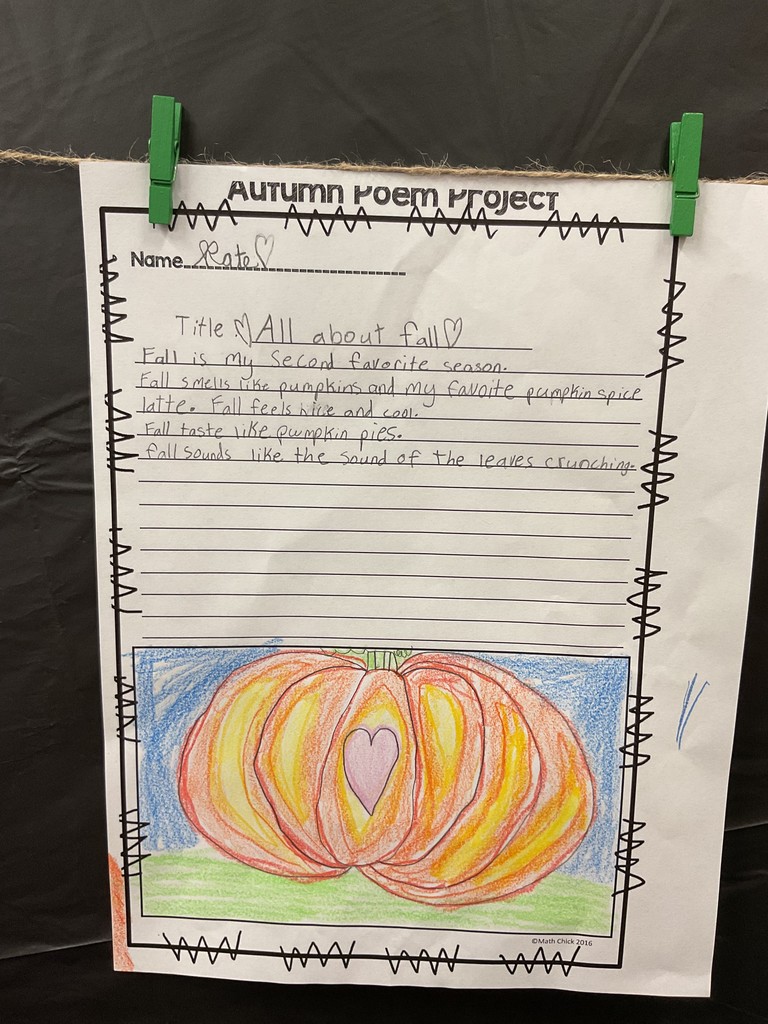 Autumn Poem Project
Name Kate
Title All about fall
Fall is my second favorite season.
Fall smells like pumpkins and my favoite pumpkin spice
latte. Fall feels nice and cool.
Fall taste like pumpkin pies.
fall sounds like the sound of the leaves crunching.
©Math Chick 2016